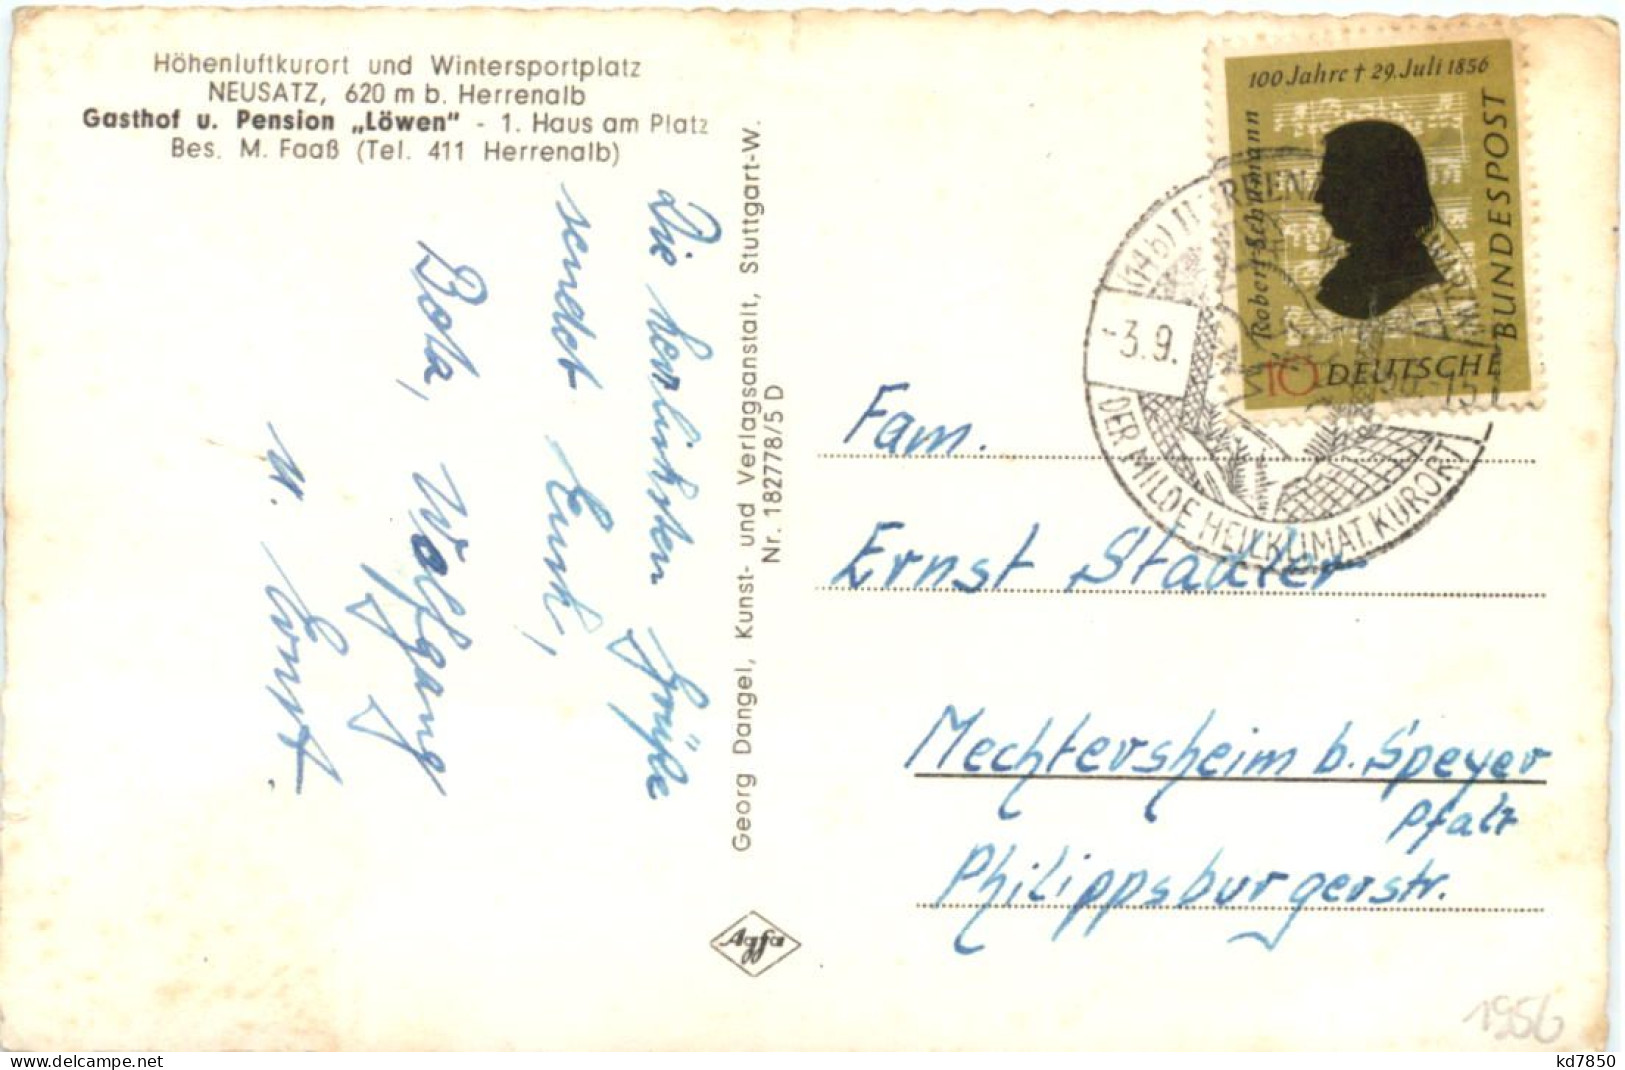 Höhenluftkurort und Wintersportplatz
NEUSATZ, 620 m b. Herrenalb
Gasthof u. Pension „Löwen" - 1. Haus am Platz
Bes. M. Faaß (Tel. 411 Herrenalb)
Die herzlichsten Grüße
sendet Euch,
Bota, Wolfgang
u. Ernst.
Georg Dangel, Kunst- und Verlagsanstalt, Stuttgart-W.
Nr. 182778/5 D
Agfa
100 Jahre † 29. Juli 1856
Robert Schumann
DEUTSCHE BUNDESPOST
10
(14b) HERRENALB
-3.9.
DER MILDE HEILKLIMAT. KURORT
Fam.
Ernst Stadler
Mechtersheim b. Speyer
Pfalz
Philippsburgerstr.
1956
www.delcampe.net
kd7850